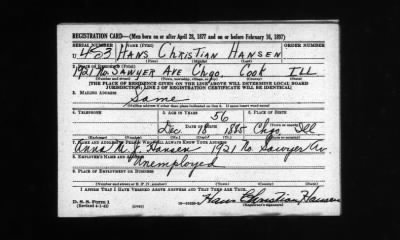 REGISTRATION CARD—(Men born on or after April 28, 1877 and on or before February 16, 1897)
SERIAL NUMBER 1. NAME (Print) ORDER NUMBER
U 453 HANS CHRISTIAN HANSEN
(First) (Middle) (Last)
2. PLACE OF RESIDENCE (Print)
1921 No. SAWYER AVE Chgo. Cook ILL
(Number and street) (Town, township, village, or city) (County) (State)
[THE PLACE OF RESIDENCE GIVEN ON THE LINE ABOVE WILL DETERMINE LOCAL BOARD
JURISDICTION; LINE 2 OF REGISTRATION CERTIFICATE WILL BE IDENTICAL]
3. MAILING ADDRESS
Same
[Mailing address if other than place indicated on line 2. If same insert word same]
4. TELEPHONE 5. AGE IN YEARS 6. PLACE OF BIRTH
56
DATE OF BIRTH
Dec 18 1885 Chgo. Ill
7. NAME AND ADDRESS OF PERSON WHO WILL ALWAYS KNOW YOUR ADDRESS
Anna M. Hansen 1921 No Sawyer Av.
8. EMPLOYER'S NAME AND ADDRESS
Unemployed
9. PLACE OF EMPLOYMENT OR BUSINESS
(Number and street or R. F. D. number) (Town) (County) (State)
I AFFIRM THAT I HAVE VERIFIED ABOVE ANSWERS AND THAT THEY ARE TRUE.
D. S. S. Form 1
(Revised 4-1-42)
Hans Christian Hansen
(Registrant's signature)